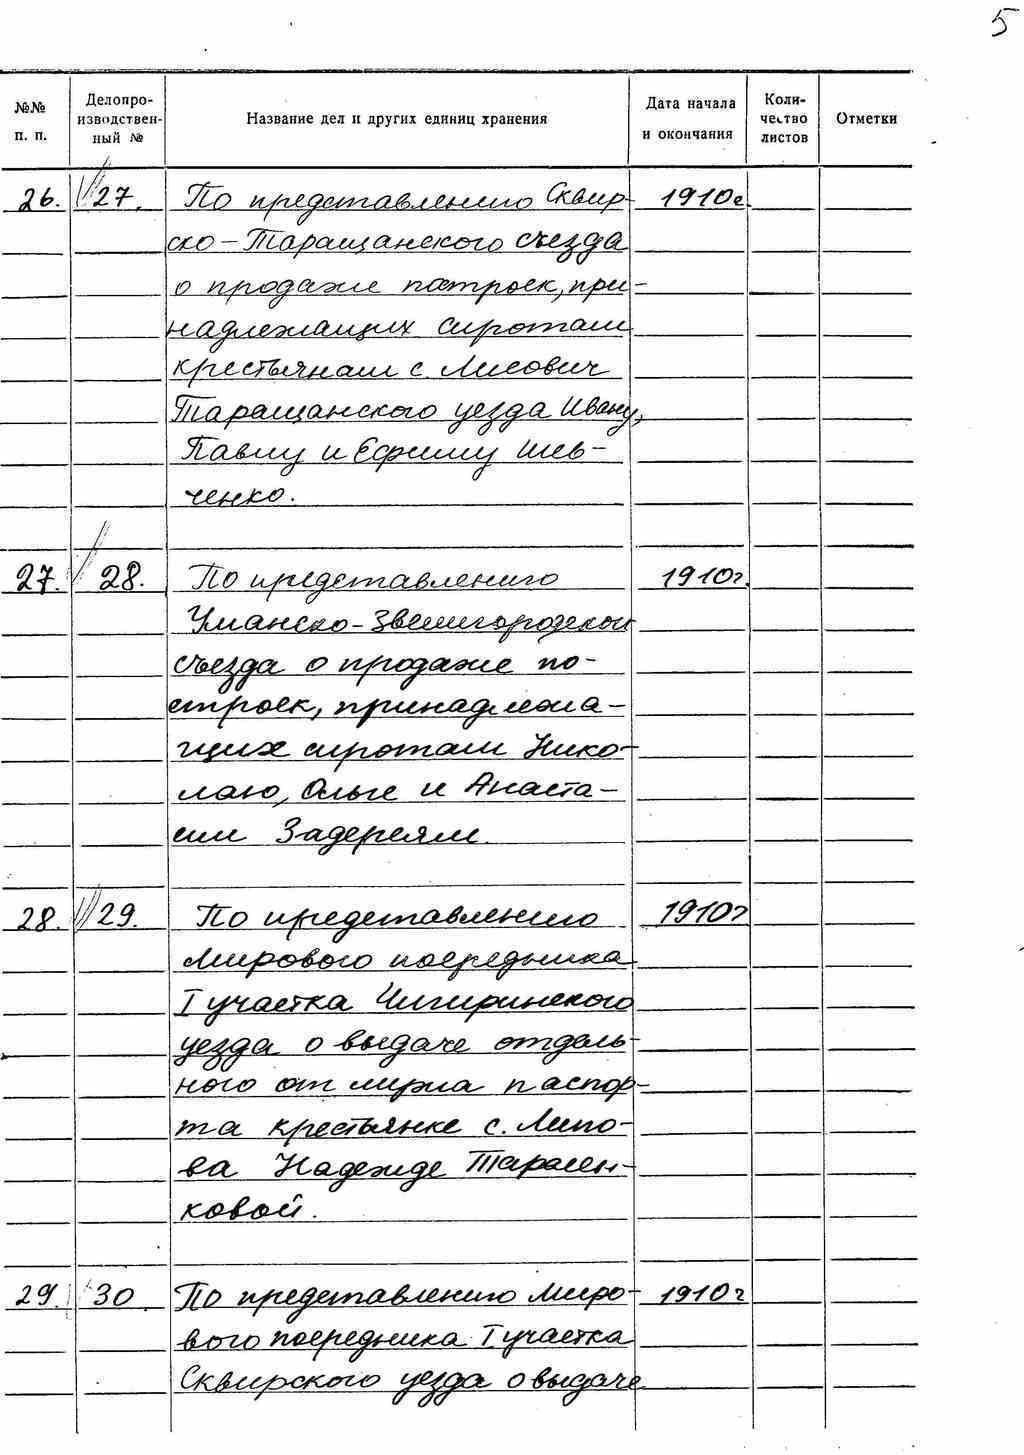 5
№№ п. п. | Делопро-изводствен-ный № | Название дел и других единиц хранения | Дата начала и окончания | Коли-чество листов | Отметки
26. 27. По представлению Сквир- 1910г.
ско-Таращанского съезда
о продаже построек, при-
надлежащих сиротам
крестьянам с. Лисович
Таращанского уезда Ивану,
Павлу и Ефиму Шев-
ченко.
27. 28. По представлению 1910г.
Уманско-Звенигородской
съезда о продаже по-
строек, принадлежа-
щих сиротам Нико-
лаю, Ольге и Анаста-
сии Задереям.
28. 29. По представлению 1910г
Мирового посредника
I участка Чигиринского
уезда о выдаче отдель-
ного от мужа паспор-
та крестьянке с. Липо-
ва Надежде Тарасен-
ковой.
29. 30. По представлению Миро- 1910г
вого посредника I участка
Сквирского уезда о выдаче